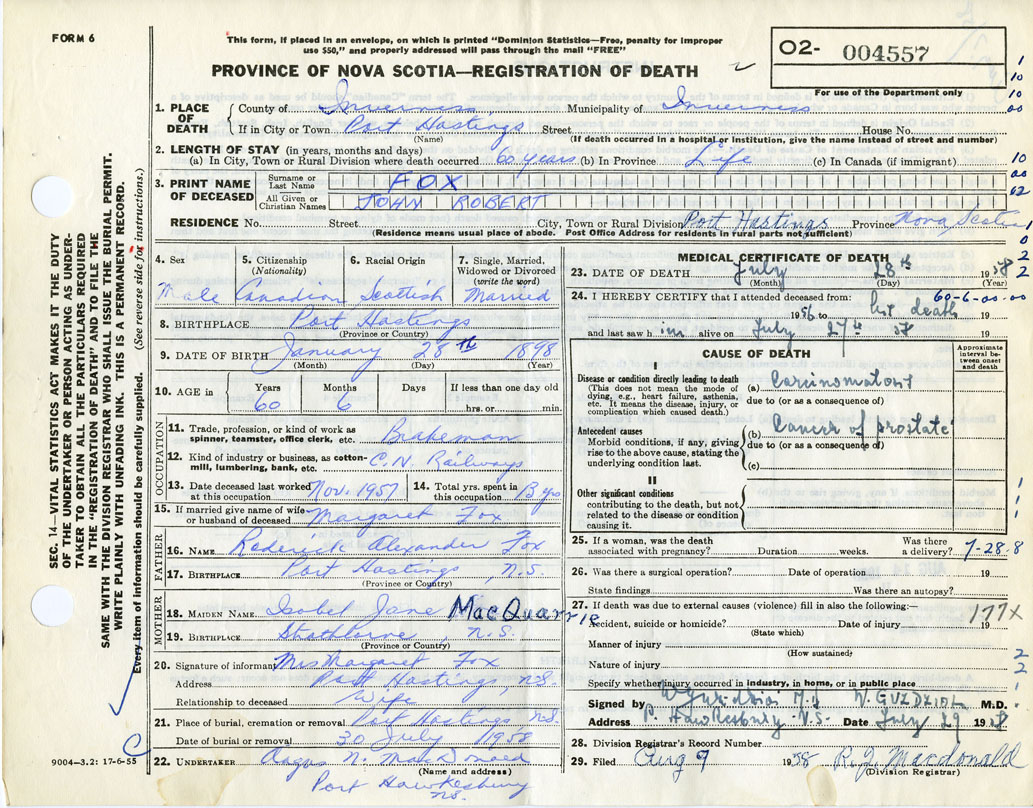 FORM 6
This form, if placed in an envelope, on which is printed "Dominion Statistics—Free, penalty for improper
use $50," and properly addressed will pass through the mail "FREE"
PROVINCE OF NOVA SCOTIA—REGISTRATION OF DEATH
02- 004557
For use of the Department only
1. PLACE OF DEATH
County of Inverness Municipality of Inverness
If in City or Town Port Hastings Street House No.
(Name) (If death occurred in a hospital or institution, give the name instead of street and number)
2. LENGTH OF STAY (in years, months and days)
(a) In City, Town or Rural Division where death occurred 60 years (b) In Province Life (c) In Canada (if immigrant)
3. PRINT NAME OF DECEASED
Surname or Last Name FOX
All Given or Christian Names JOHN ROBERT
RESIDENCE No. Street City, Town or Rural Division Port Hastings Province Nova Scotia
(Residence means usual place of abode. Post Office Address for residents in rural parts not sufficient)
1
10
10
00
10
00
02
1
0
2
2
SEC. 14—VITAL STATISTICS ACT MAKES IT THE DUTY
OF THE UNDERTAKER OR PERSON ACTING AS UNDER-
TAKER TO OBTAIN ALL THE PARTICULARS REQUIRED
IN THE "REGISTRATION OF DEATH" AND TO FILE THE
SAME WITH THE DIVISION REGISTRAR WHO SHALL ISSUE THE BURIAL PERMIT.
WRITE PLAINLY WITH UNFADING INK. THIS IS A PERMANENT RECORD.
Every item of information should be carefully supplied. (See reverse side for instructions.)
4. Sex Male
5. Citizenship (Nationality) Canadian
6. Racial Origin Scottish
7. Single, Married, Widowed or Divorced (write the word) Married
8. BIRTHPLACE Port Hastings
(Province or Country)
9. DATE OF BIRTH January 28th 1898
(Month) (Day) (Year)
10. AGE in Years 60 Months 6 Days If less than one day old hrs. or min.
OCCUPATION
11. Trade, profession or kind of work as
spinner, teamster, office clerk, etc. Brakeman
12. Kind of industry or business, as cotton-
mill, lumbering, bank, etc. C.N. Railways
13. Date deceased last worked at this occupation Nov. 1957
14. Total yrs. spent in this occupation 13 yrs
15. If married give name of wife or husband of deceased Margaret Fox
FATHER
16. NAME Roderick Alexander Fox
17. BIRTHPLACE Port Hastings, N.S.
(Province or Country)
MOTHER
18. MAIDEN NAME Isobel Jane MacQuarrie
19. BIRTHPLACE Strathlorne, N.S.
(Province or Country)
20. Signature of informant Mrs Margaret Fox
Address Port Hastings, N.S.
Relationship to deceased Wife
21. Place of burial, cremation or removal Port Hastings N.S.
Date of burial or removal 30 July 1958
22. UNDERTAKER Angus N. MacDonald
(Name and address)
Port Hawkesbury
N.S.
9004—3.2: 17-6-55
MEDICAL CERTIFICATE OF DEATH
23. DATE OF DEATH July 28th 1958
(Month) (Day) (Year)
24. I HEREBY CERTIFY that I attended deceased from: 60-6-00-00
1956 to his death 19
and last saw him alive on July 27th 58 19
CAUSE OF DEATH
Approximate interval between onset and death
I
Disease or condition directly leading to death
(This does not mean the mode of
dying, e.g., heart failure, asthenia,
etc. It means the disease, injury, or
complication which caused death.)
(a)
due to (or as a consequence of)
Antecedent causes
Morbid conditions, if any, giving
rise to the above cause, stating the
underlying condition last.
(b) Cancer of prostate
due to (or as a consequence of)
(c)
II
Other significant conditions
contributing to the death, but not
related to the disease or condition
causing it.
1
1
1
25. If a woman, was the death associated with pregnancy? Duration weeks. Was there a delivery? 7-28-8
26. Was there a surgical operation? Date of operation 19
State findings Was there an autopsy?
27. If death was due to external causes (violence) fill in also the following:— 177x
Accident, suicide or homicide? Date of injury 19
(State which)
Manner of injury
(How sustained)
Nature of injury
Specify whether injury occurred in industry, in home, or in public place
2
2
1
Signed by W. GUZDZIOL M.D.
Address P. Hawkesbury N.S. Date July 29 1958
28. Division Registrar's Record Number
29. Filed Aug 9 1958 R.J. Macdonald
(Division Registrar)